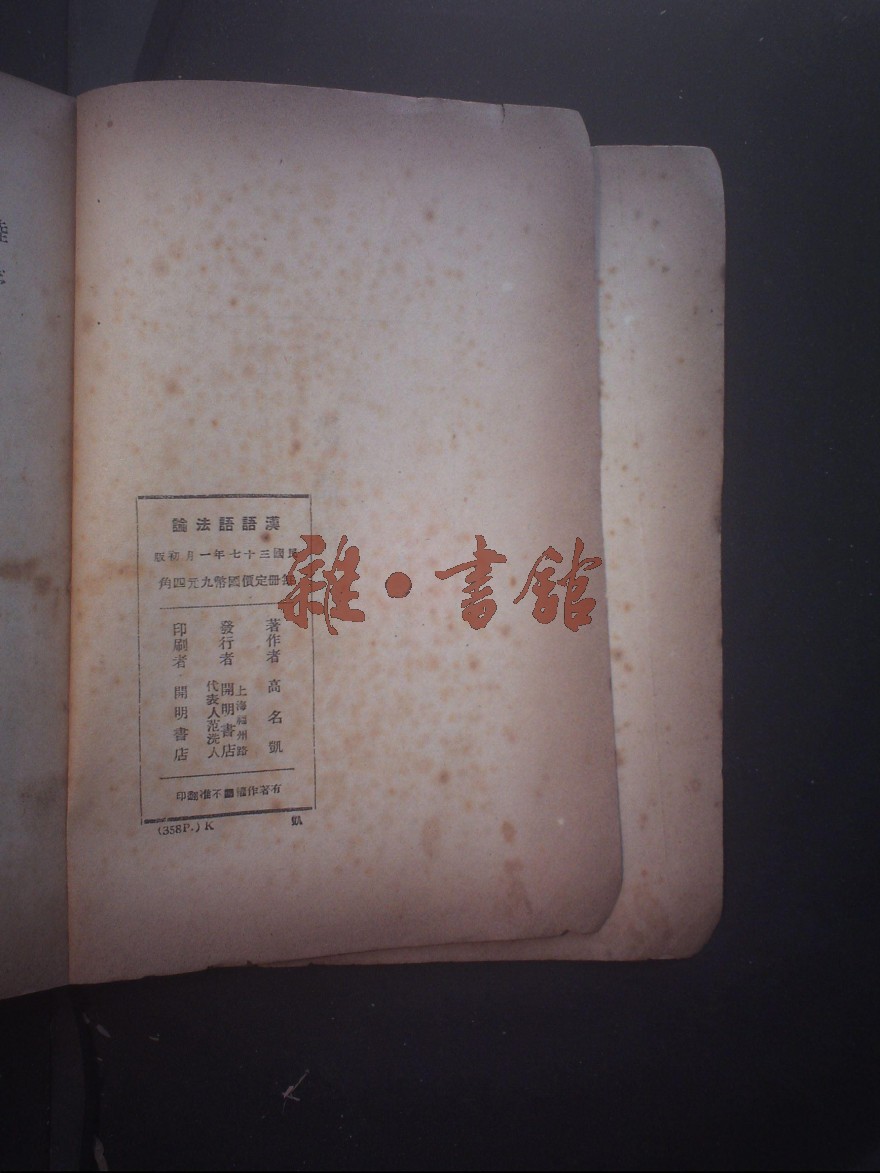 漢語語法論
民國三十七年一月初版
每册定價國幣九元四角
著作者 高名凱
發行者 上海福州路 開明書店 代表人范洗人
印刷者 開明書店
有著作權不准翻印
(358P.) K 凱
雜・書館